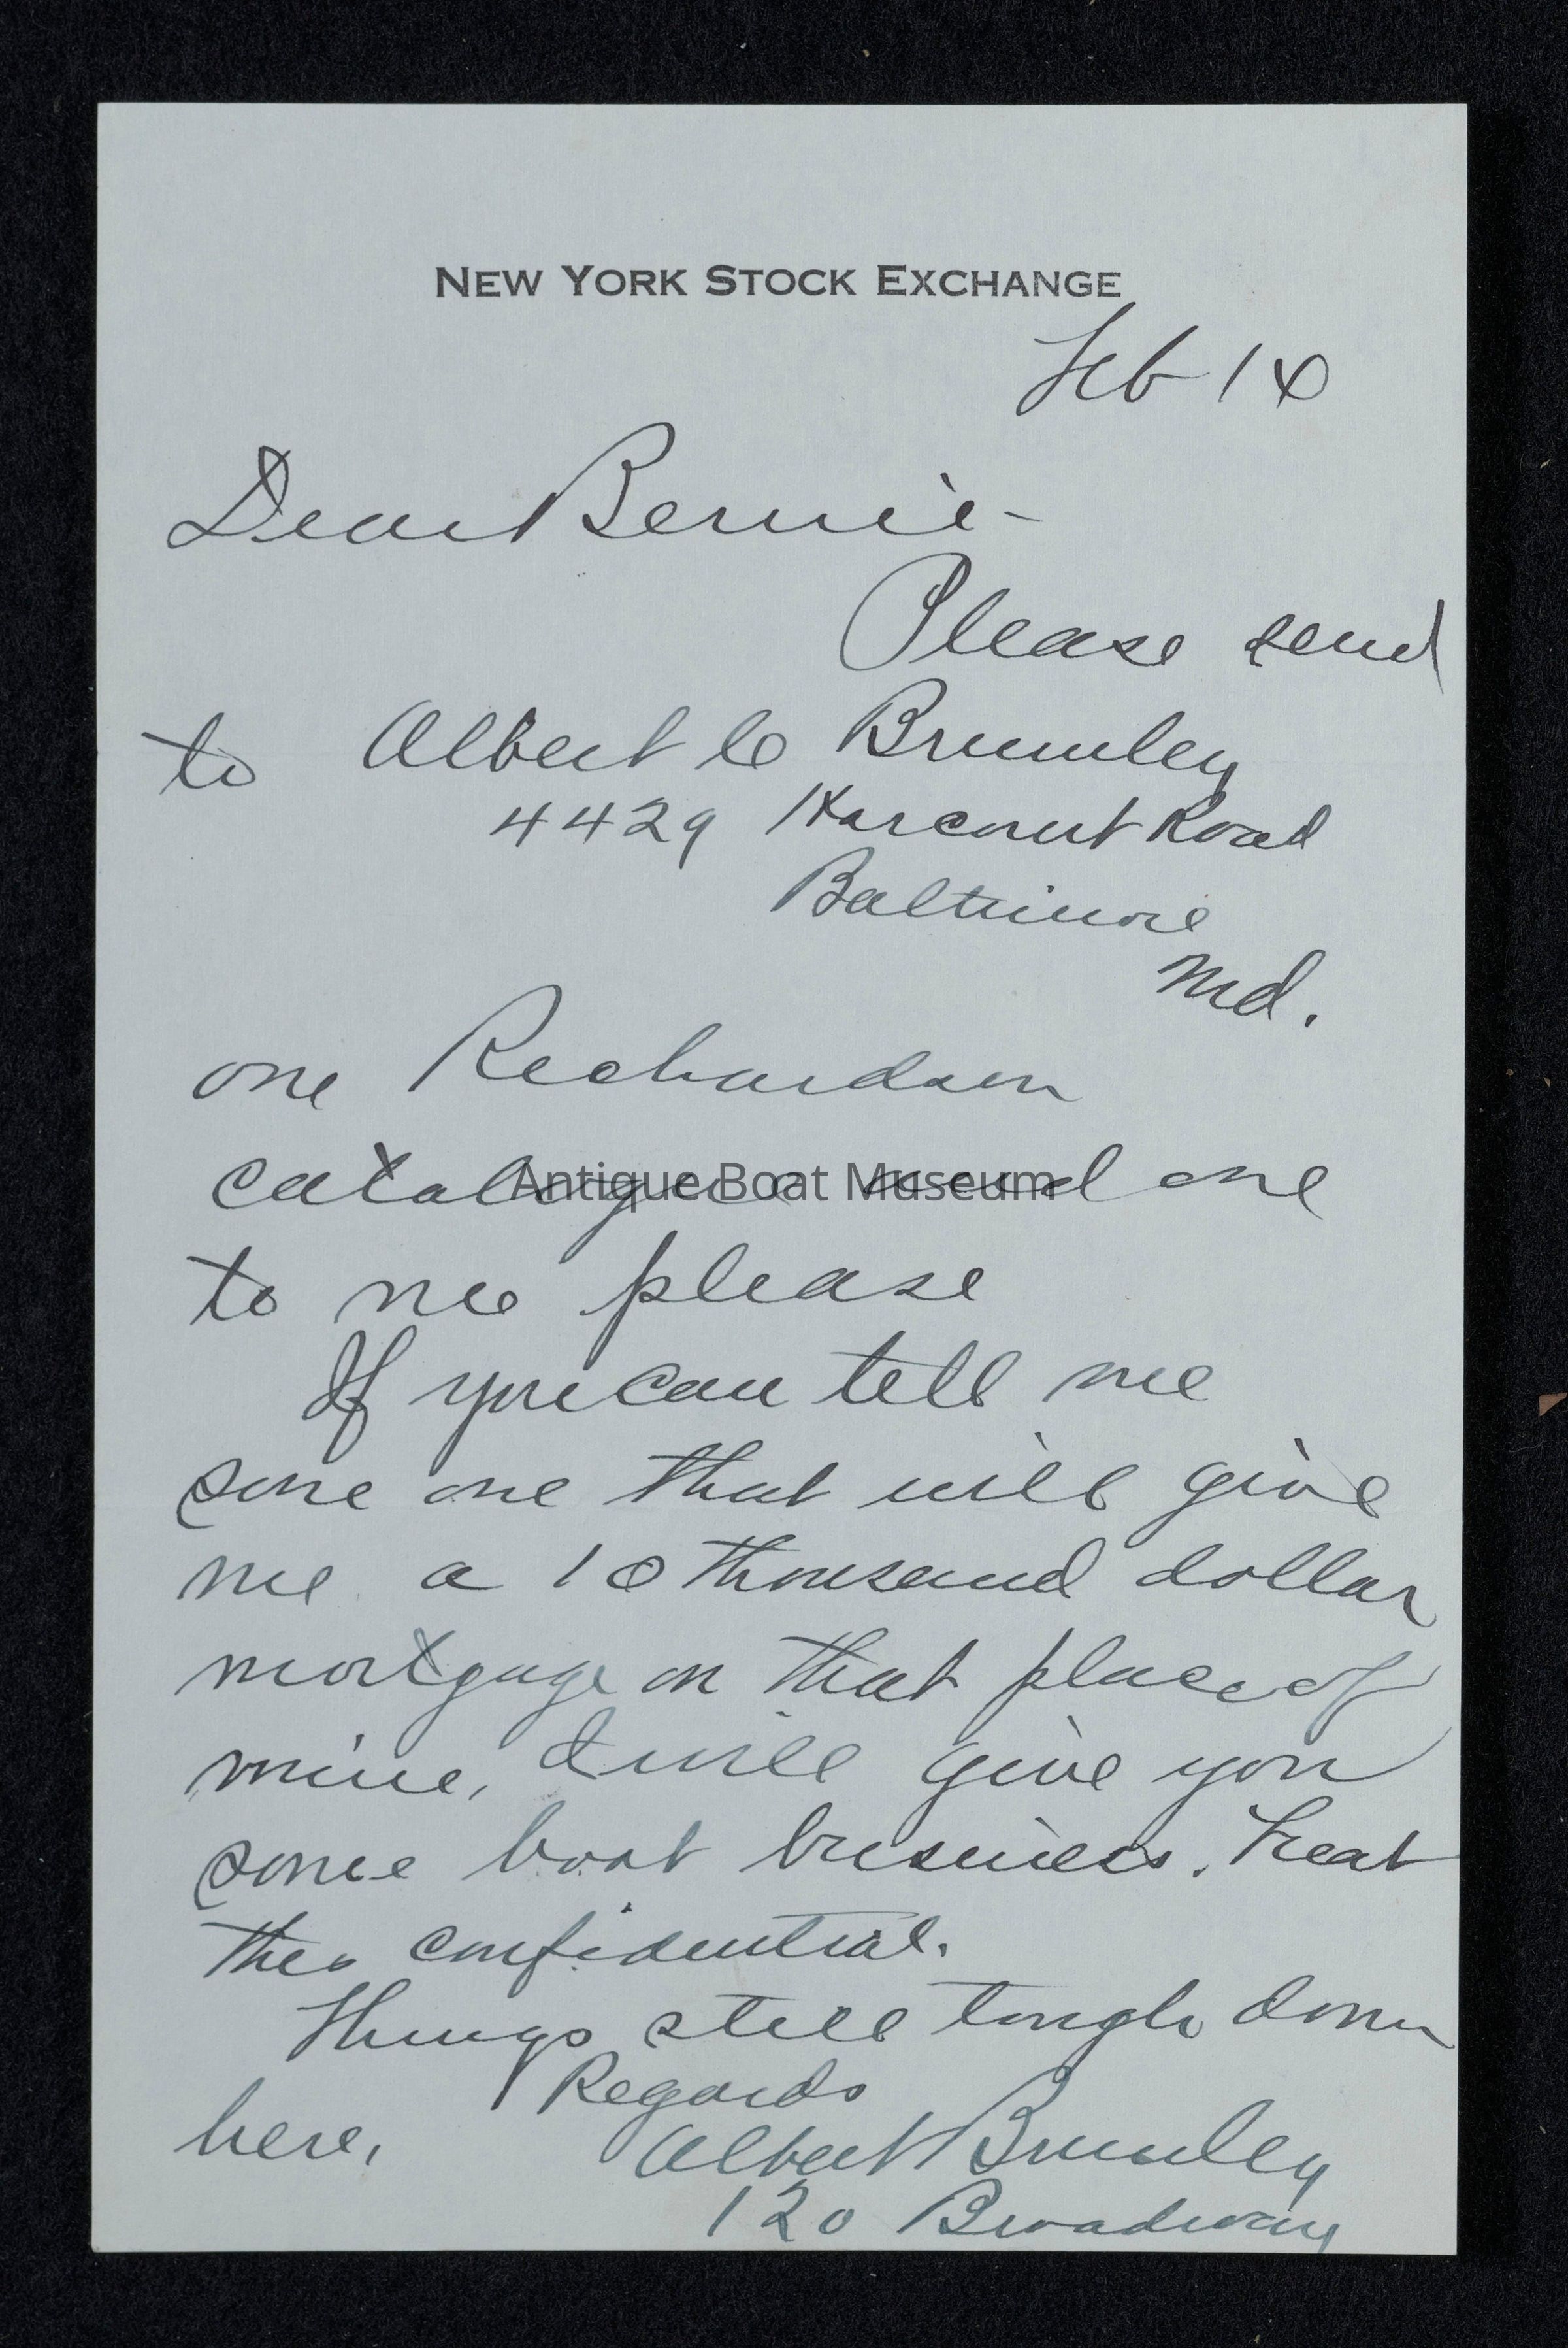 NEW YORK STOCK EXCHANGE
Feb 10
Dear Bernie -
Please send
to Albert C Brumley
4429 Harcourt Road
Baltimore
Md.
one Richardson
catalogue and one
Antique Boat Museum
to me please
If you can tell me
some one that will give
me a 10 thousand dollar
mortgage on that place of
mine, I will give you
some boat business. Treat
this confidential.
Things still tough down
here,
Regards
Albert Brumley
120 Broadway